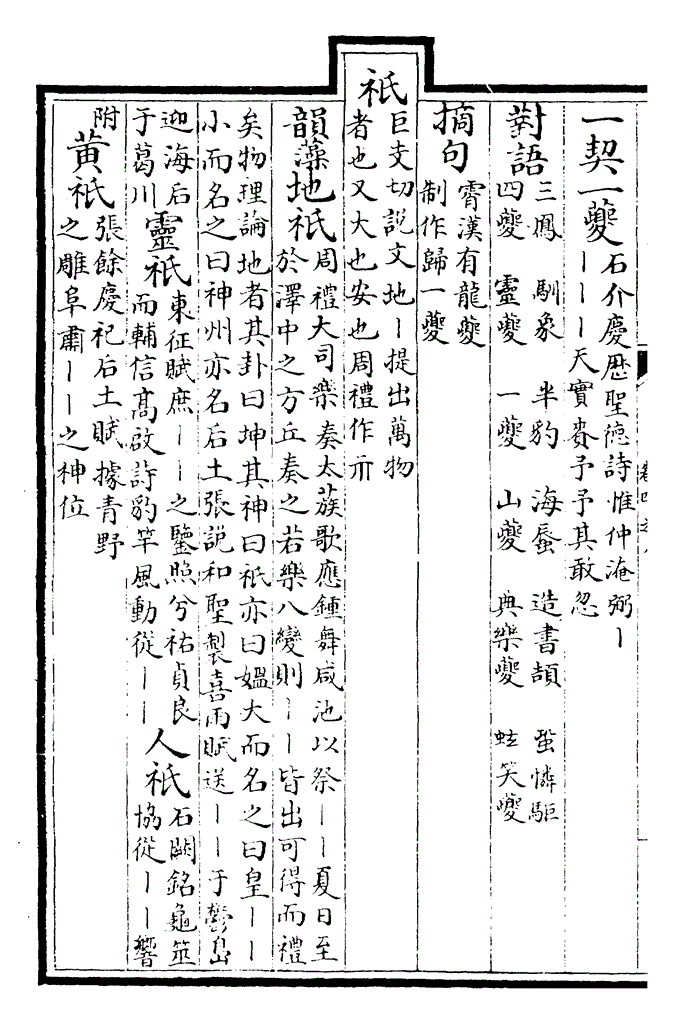 一契一夔 石介慶厯聖徳詩惟仲淹弼丨
丨丨丨天實賚予予其敢忽
對語 三鳳 馴象 半豹 海蜃 造書頡 蛩憐駏
四夔 靈夔 一夔 山夔 典樂夔 蚿笑夔
摘句 霄漢有龍夔
制作歸一夔
祇 巨支切説文地丨提出萬物
者也又大也安也周禮作示
韻藻 地祇 周禮大司樂奏太蔟歌應鍾舞咸池以祭丨丨夏日至
於澤中之方丘奏之若樂八變則丨丨皆出可得而禮
矣物理論地者其卦曰坤其神曰祇亦曰媼大而名之曰皇丨丨
小而名之曰神州亦名后土張説和聖製喜雨賦送丨丨于鬱島
迎海后
于葛川
靈祇 東征賦庶丨丨之鑒照兮祐貞良
而輔信髙啟詩豹竿風動從丨丨
人祇 石闕銘龜筮
協從丨丨響
附 黄祇 張餘慶祀后土賦據青野
之雕阜肅丨丨之神位